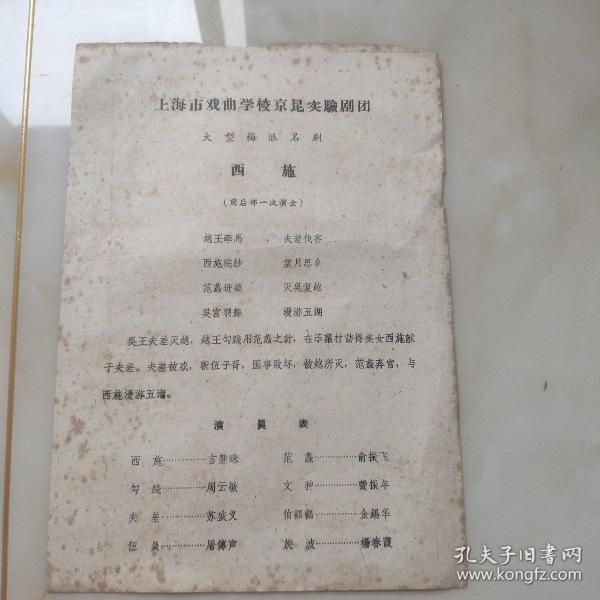 上海市戏曲学校京昆实驗剧团
大型梅派名剧
西施
(前后部一次演全)
越王牵馬 夫差伐齐
西施浣紗 望月思乡
范蠡进美 灭吳复越
吳宮羽舞 漫游五湖
吳王夫差灭越，越王勾踐用范蠡之計，在苧蘿村訪得美女西施献
于夫差。夫差被惑，斬伍子胥，国事敗坏，被越所灭，范蠡弃官，与
西施漫游五湖。
演員表
西施……………言慧珠 范蠡……………俞振飞
勾踐……………周云敏 文种……………費振年
夫差……………苏盛义 伯嚭……………金錫华
伍員……………屠傳声 旋波……………楊春霞
孔夫子旧書网
www.kongfz.com